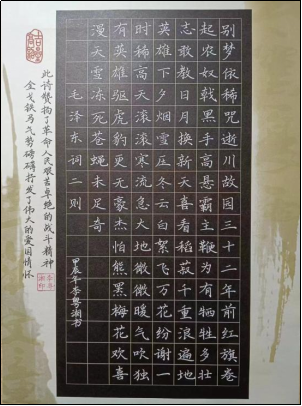 别梦依稀咒逝川故园三十二年前红旗卷
起农奴戟黑手高悬霸主鞭为有牺牲多壮
志敢教日月换新天喜看稻菽千重浪遍地
英雄下夕烟雪压冬云白絮飞万花纷谢一
时稀高天滚滚寒流急大地微微暖气吹独
有英雄驱虎豹更无豪杰怕熊罴梅花欢喜
漫天雪冻死苍蝇未足奇
毛泽东词二则
甲辰年李粤湘书
此诗赞扬了革命人民艰苦卓绝的战斗精神
金戈铁马气势磅礴抒发了伟大的爱国情怀